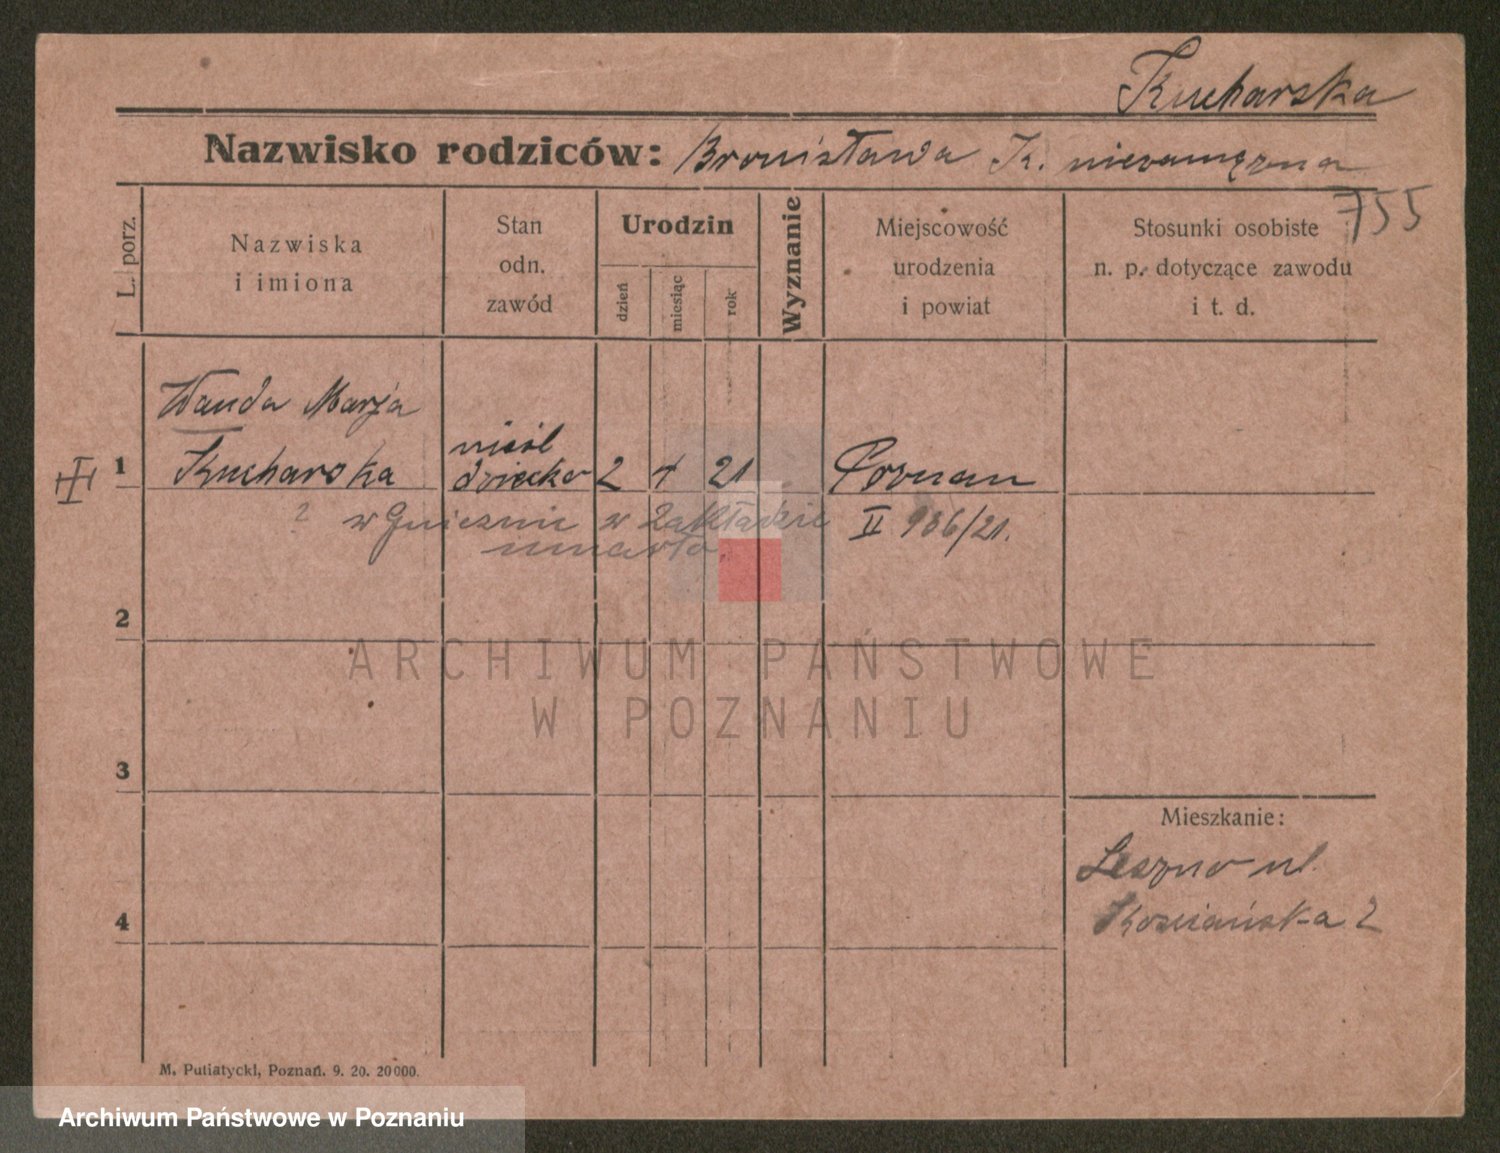 Kucharska
Nazwisko rodziców: Bronisława K. niezamężna
755
L. porz.
Nazwiska
i imiona
Stan
odn.
zawód
Urodzin
dzień
miesiąc
rok
Wyznanie
Miejscowość
urodzenia
i powiat
Stosunki osobiste
n. p. dotyczące zawodu
i t. d.
Wanda Marja
1 Kucharska nieśl dziecko 2 4 21 Poznan
2 w Gnieznie w Zakładzie II 986/21.
umarło.
2
ARCHIWUM PAŃSTWOWE
W POZNANIU
3
Mieszkanie:
Leszno ul.
Kościańska 2
4
M. Putiatycki, Poznań. 9. 20. 20000.
Archiwum Państwowe w Poznaniu